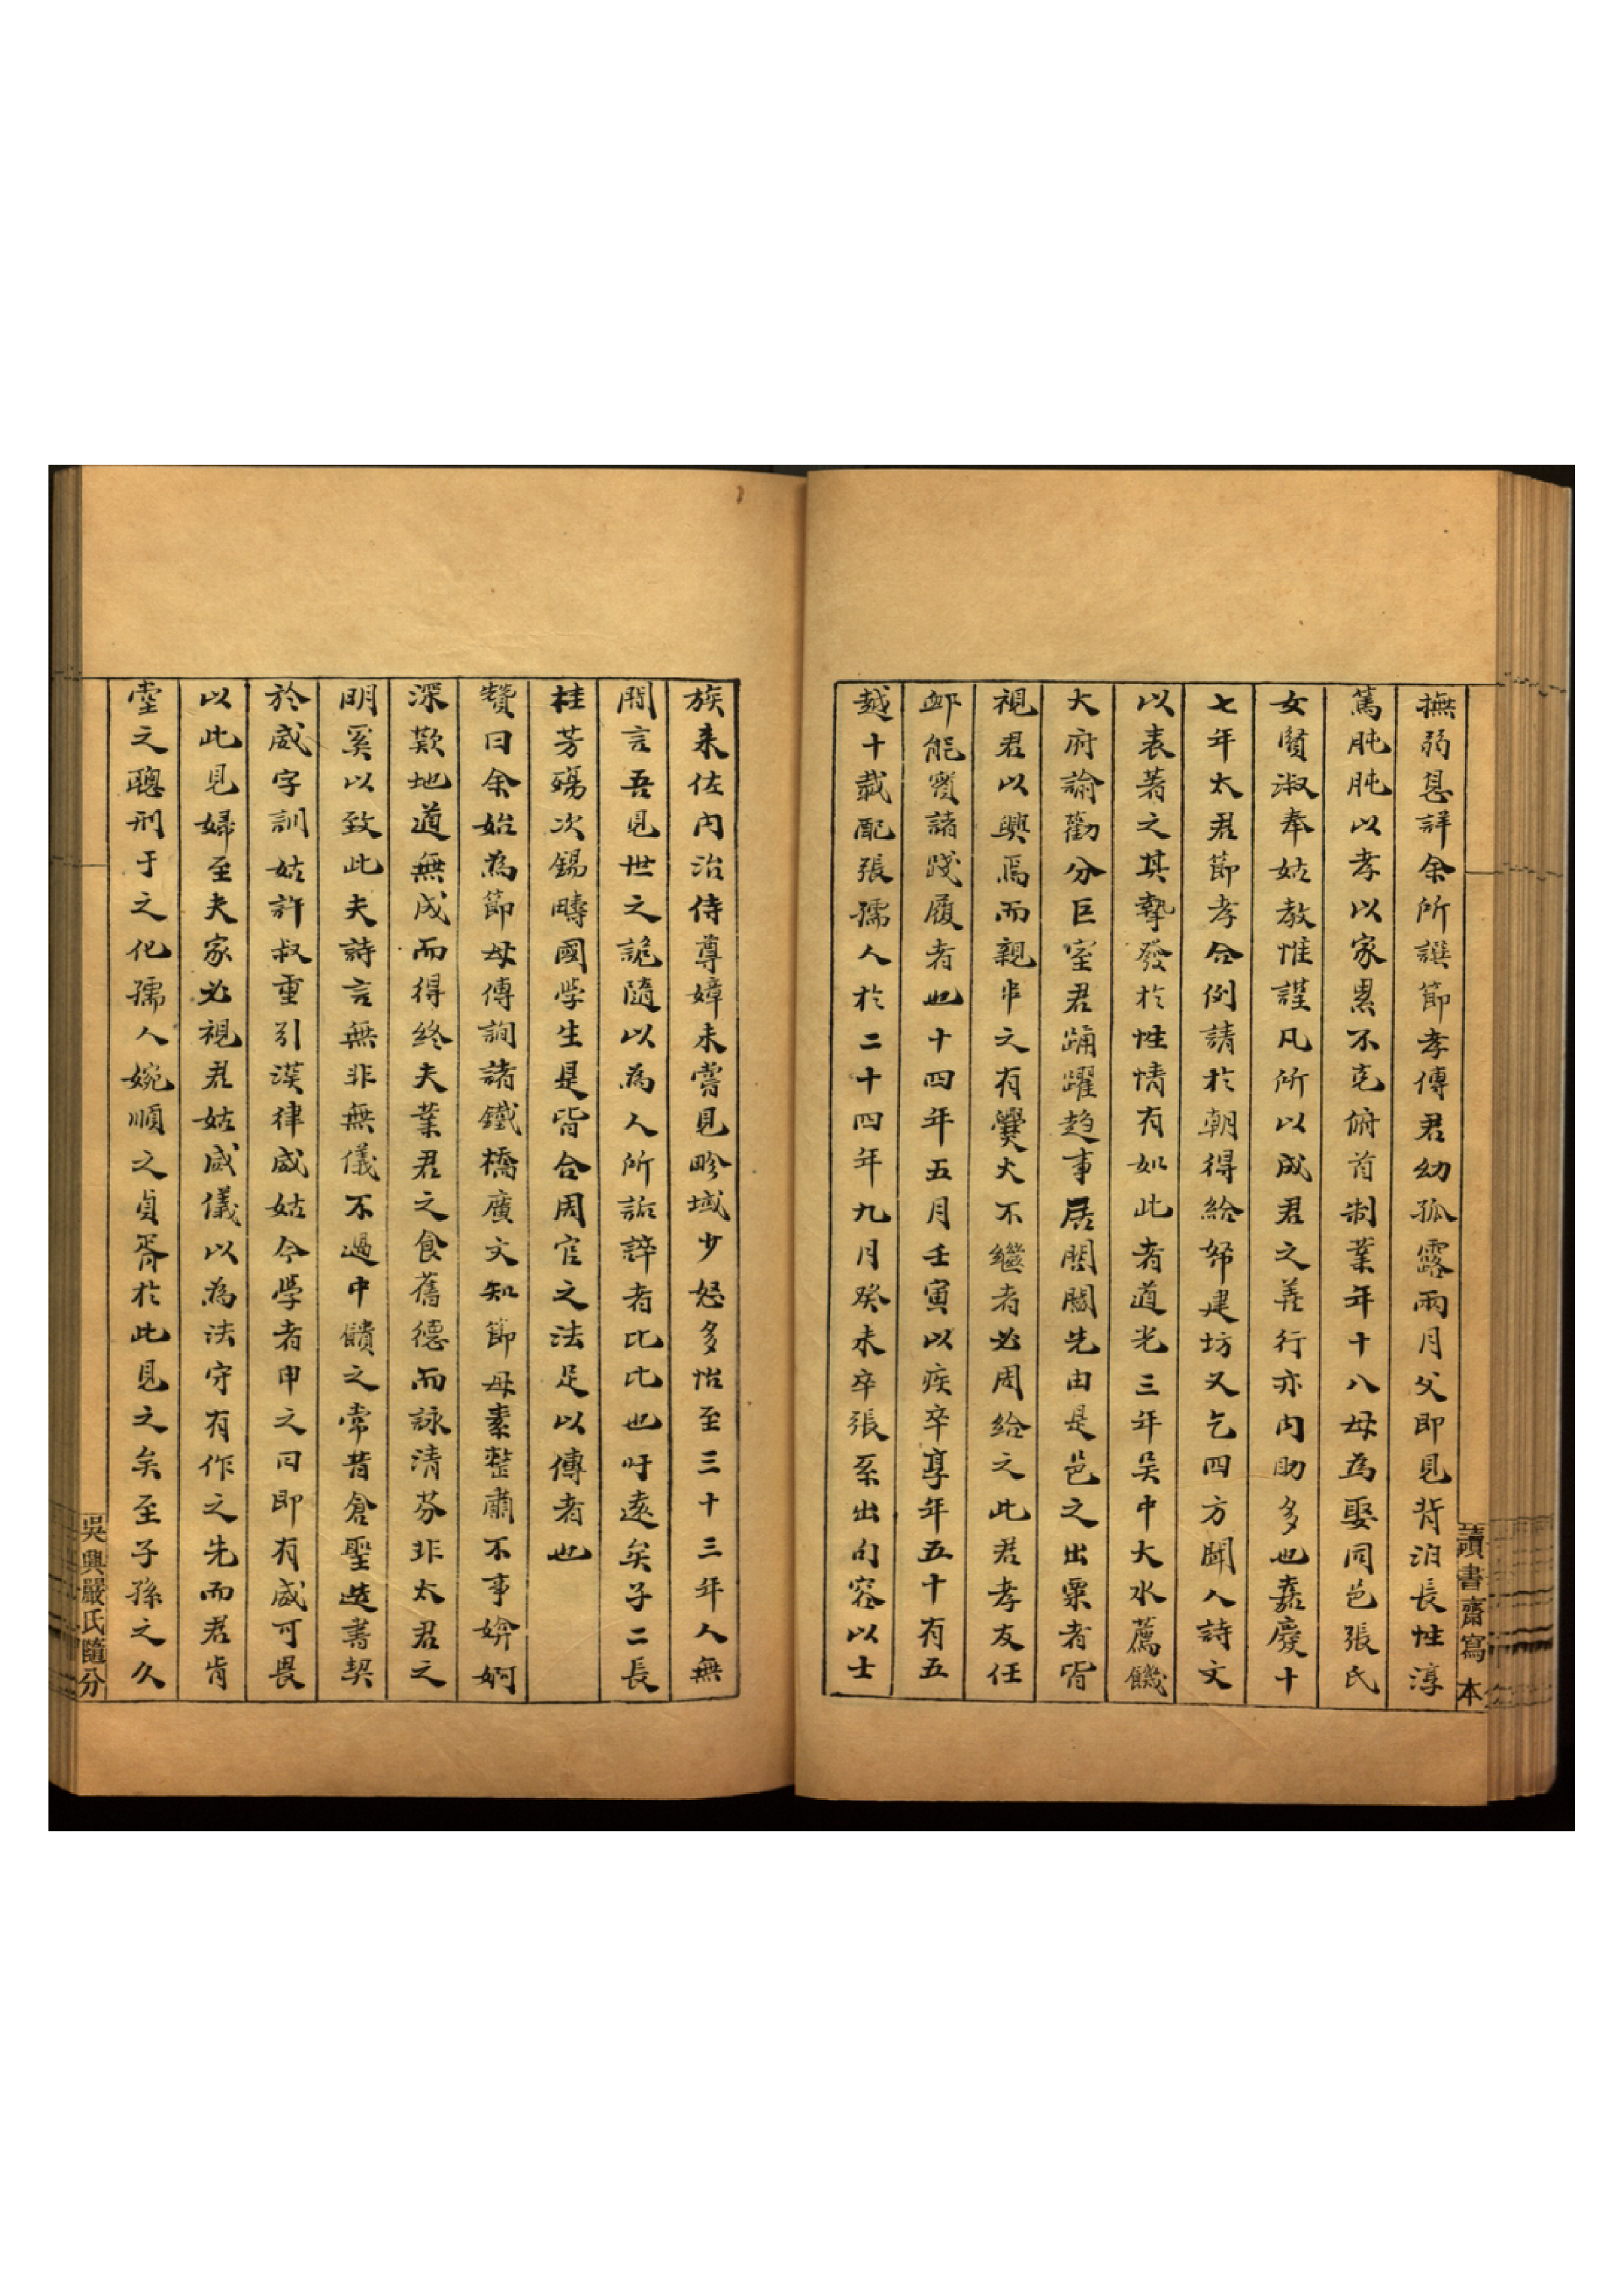 撫弱息詳余所譔節孝傳君幼孤露兩月父即見背洎長性淳
篤肫肫以孝以家累不克俯首制業年十八母為娶同邑張氏
女賢淑奉姑教惟謹凡所以成君之義行亦内助多也嘉慶十
七年太君節孝合例請於朝得給帑建坊又乞四方聞人詩文
以表著之其摯發於性情有如此者道光三年吳中大水薦饑
大府諭勸分巨室君踊躍趋事居閭閻先由是邑之出粟者皆
視君以興焉而親串之有爨火不繼者必周給之此君孝友任
卹能實諸踐履者也十四年五月壬寅以疾卒享年五十有五
越十載配張孺人於二十四年九月癸未卒張系出句容以士
族来佐内治侍尊嫜未嘗見畛域少怒多怡至三十三年人無
閒言吾見世之詭隨以為人所詬誶者比比也吁遠矣子二長
桂芳殤次錫疇國學生是皆合周官之法足以傳者也
贊曰余始為節母傳詢諸鐵橋廣文知節母素整肅不事媕婀
深歎地道無成而得終夫業君之食舊德而詠清芬非太君之
明奚以致此夫詩言無非無儀不過中饋之常昔倉聖造書契
於威字訓姑許叔重引漢律威姑今學者申之曰即有威可畏
以此見婦至夫家必視君姑威儀以為法守有作之先而君肯
堂之聰刑于之化孺人婉順之貞胥於此見之矣至子孫之久
讀書齋寫本
吳興嚴氏隨分